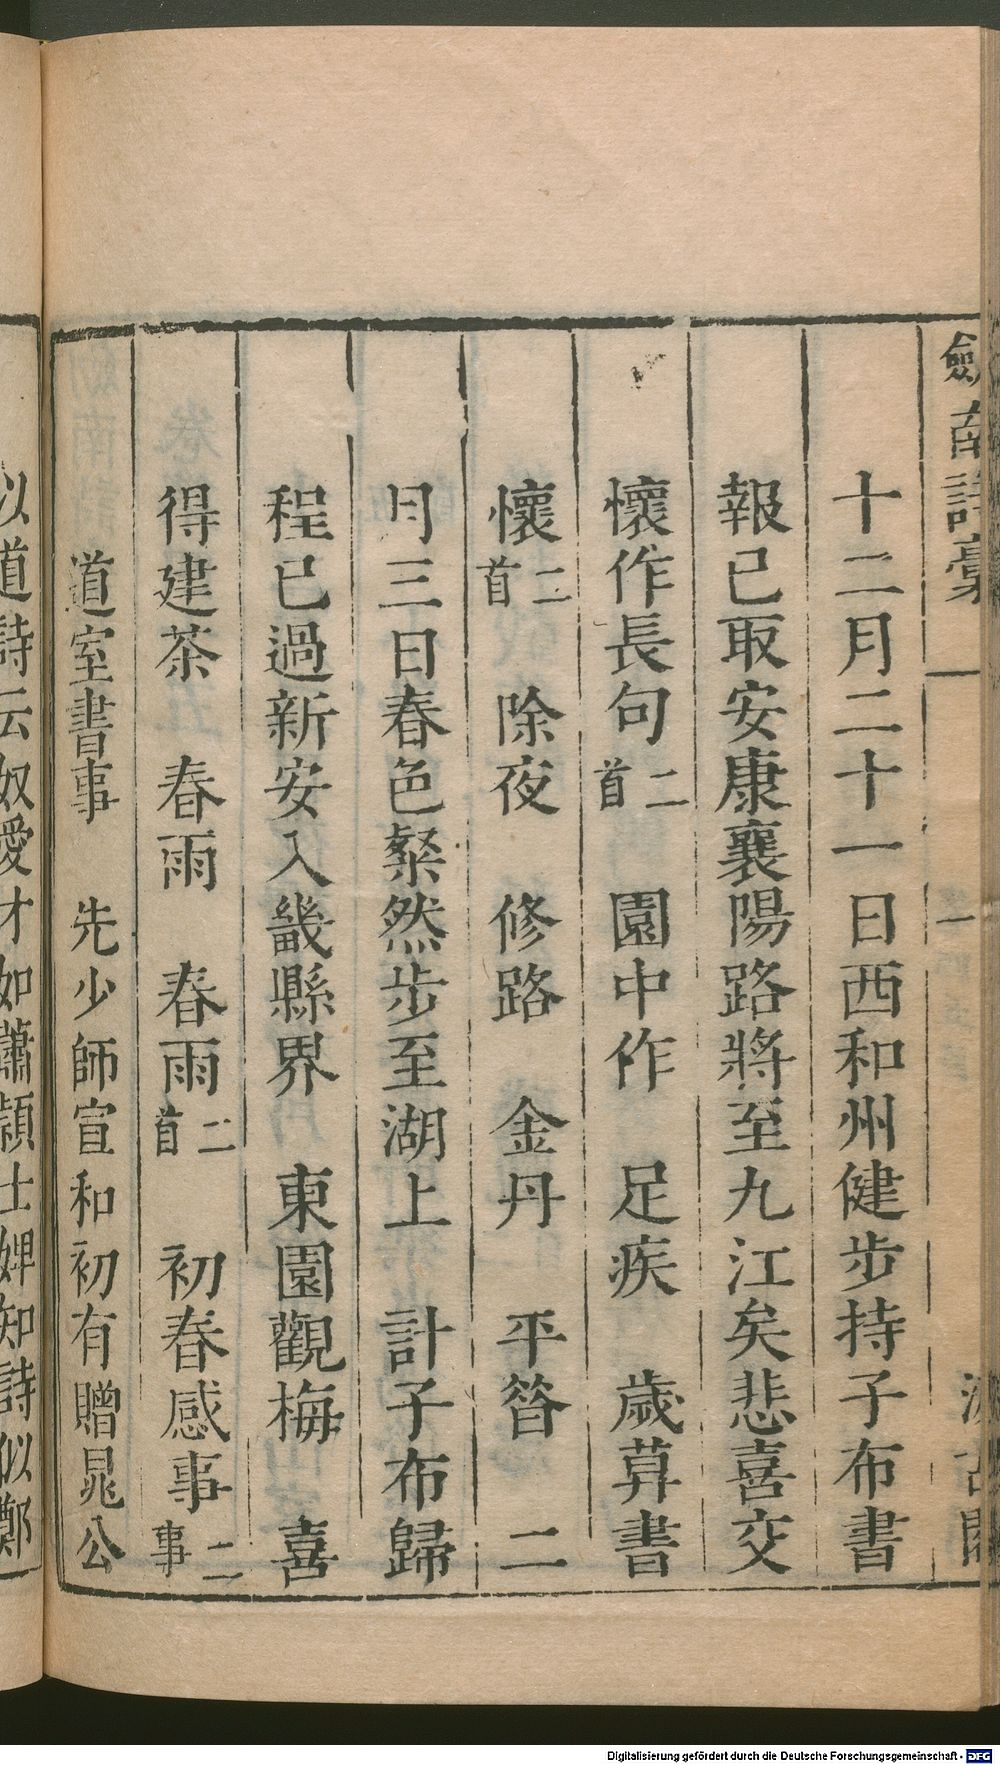 劍南詩稾 一 汲古閣
十二月二十一日西和州健步持子布書
報已取安康襄陽路將至九江矣悲喜交
懷作長句二首 園中作 足疾 歲莫書
懷二首 除夜 修路 金丹 平昝 二
月三日春色粲然步至湖上 計子布歸
程已過新安入畿縣界 東園觀梅 喜
得建茶 春雨 春雨二首 初春感事二事
道室書事 先少師宣和初有贈晁公
以道詩云奴愛才如蕭穎士婢知詩似鄭
Digitalisierung gefördert durch die Deutsche Forschungsgemeinschaft - DFG